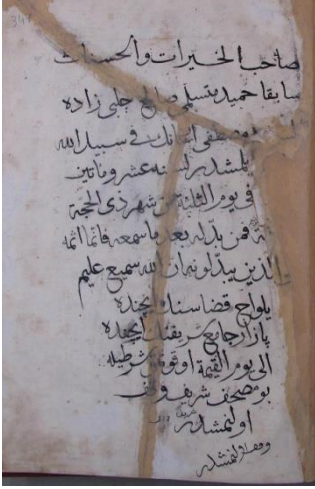 صاحب الخيرات والحسنات
سابقا حميد متسلمى صالح چلبى زاده
مصطفى اغانك فى سبيل الله
سنه عشر ومأتين
فى يوم الثلثه من شهر ذى الحجة
فمن بدله بعد ما سمعه فانما اثمه
الذين يبدلونه ان الله سميع عليم
يلواج قضاسنك ايچنده
بازار جامع شريفنك ايچنده
الى يوم القيمة اوقونمق شرطيله
بو مصحف شريف وقف
اولنمشدر
وقف اولنمشدر